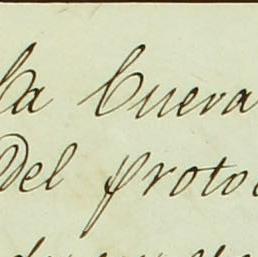 la Cueva
Del proto